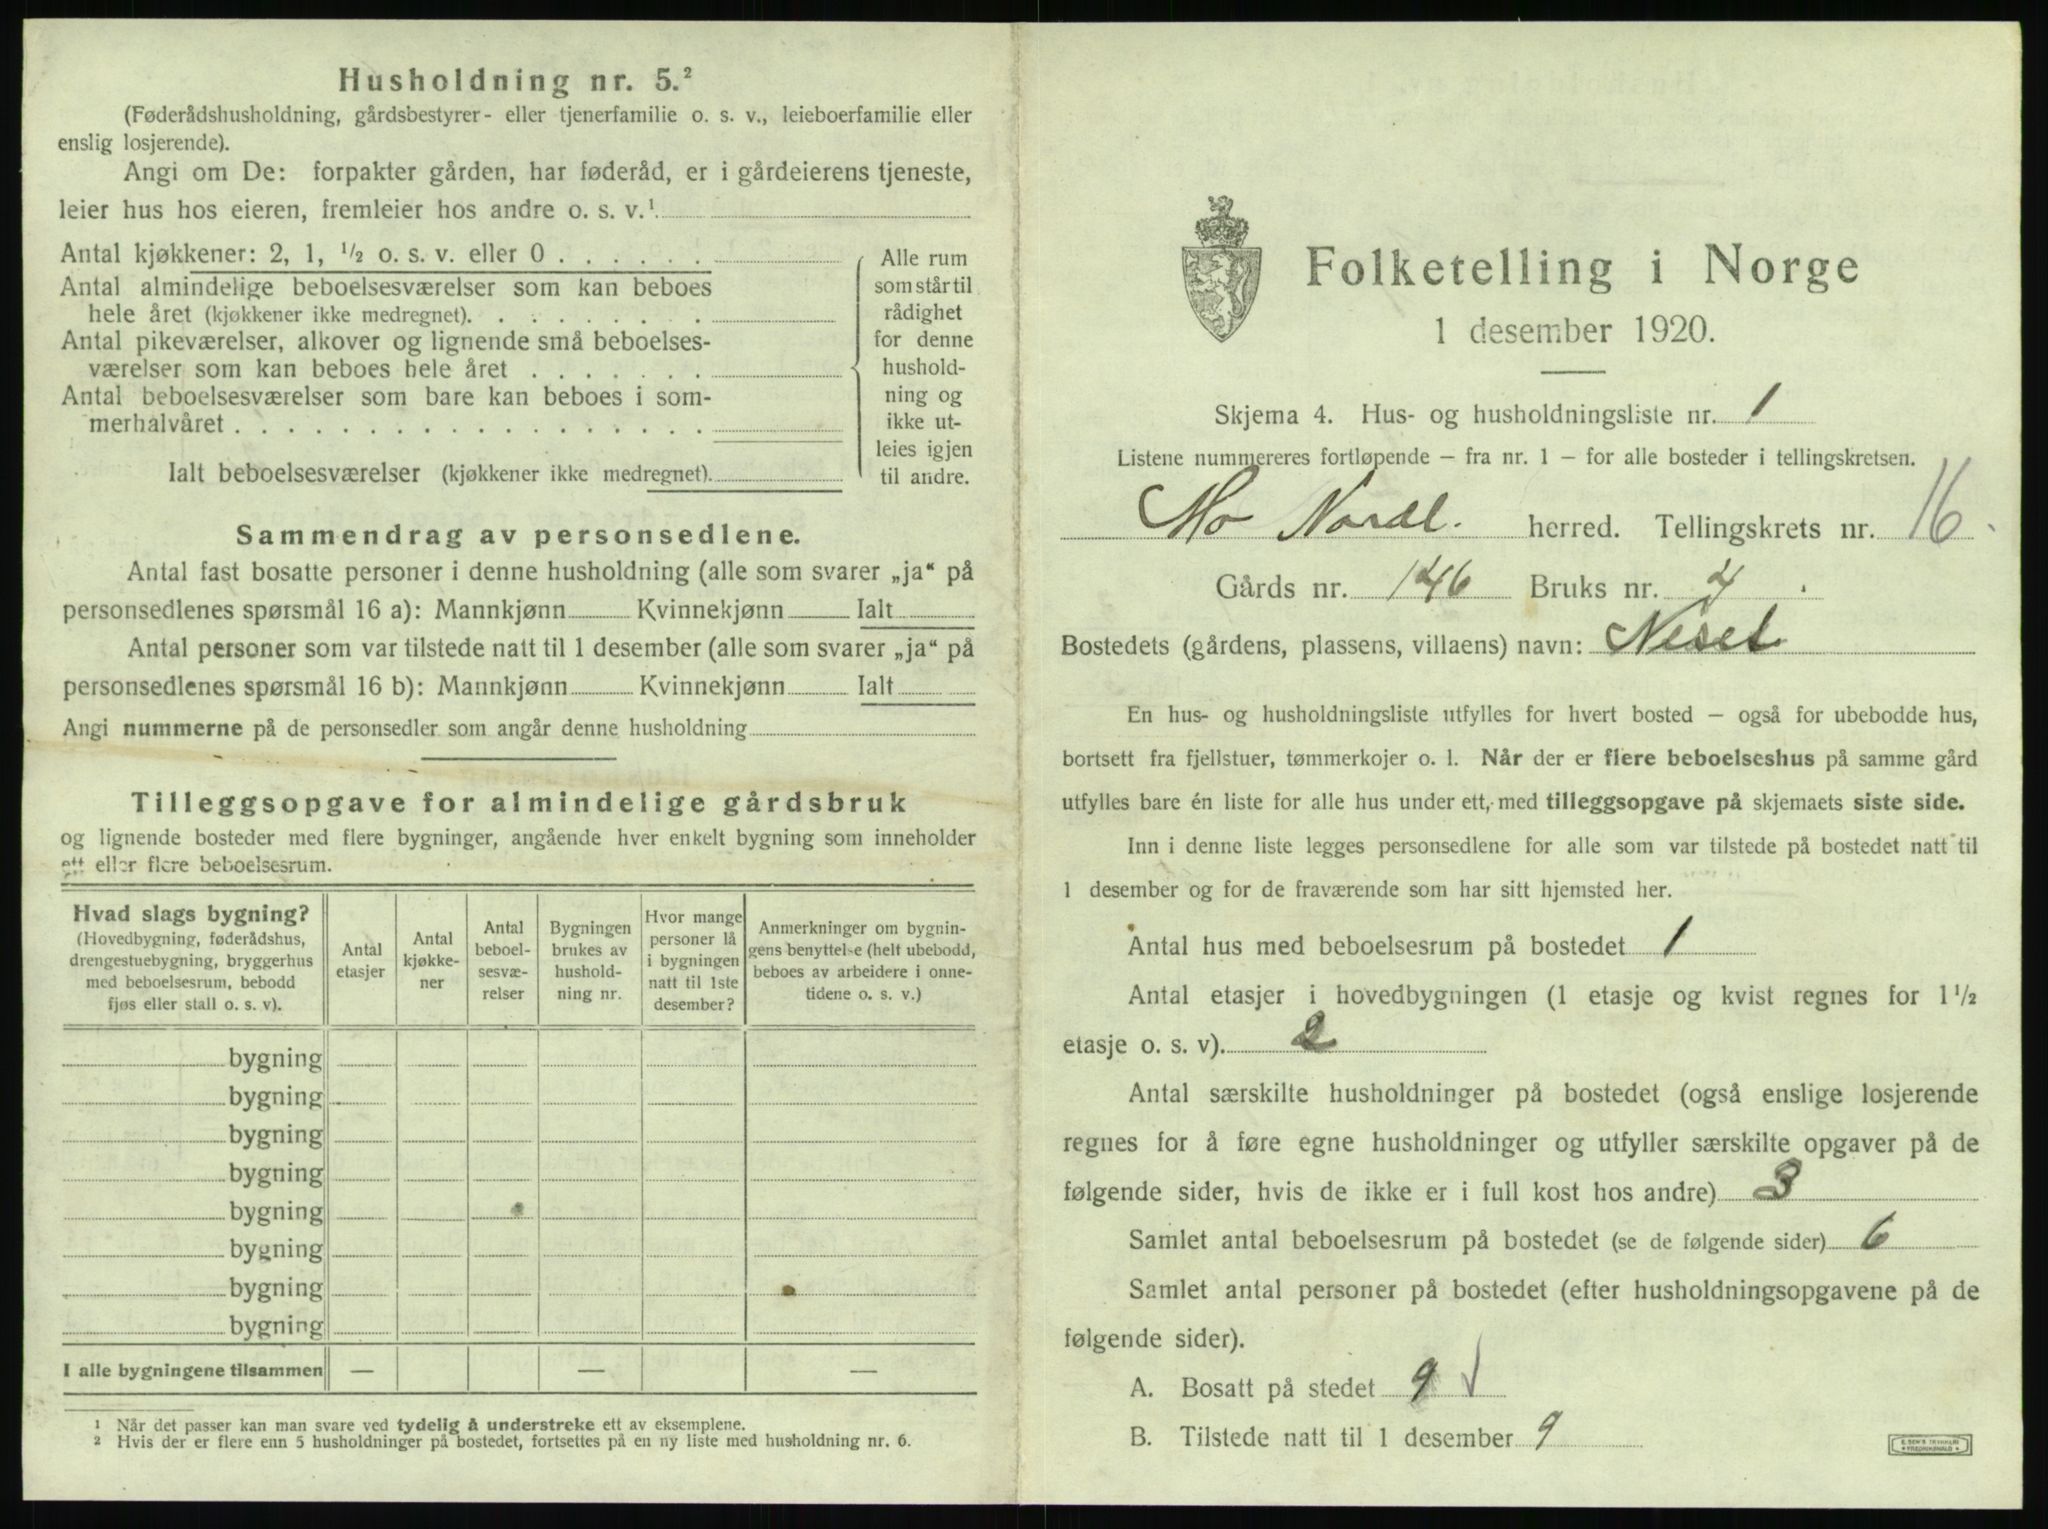 Husholdning nr. 5.²
(Føderådshusholdning, gårdsbestyrer- eller tjenerfamilie o. s. v., leieboerfamilie eller
enslig losjerende).
Angi om De: forpakter gården, har føderåd, er i gårdeierens tjeneste,
leier hus hos eieren, fremleier hos andre o. s. v.¹
Antal kjøkkener: 2, 1, ½ o. s. v. eller 0 . . . . . .
Antal almindelige beboelsesværelser som kan beboes
hele året (kjøkkener ikke medregnet). . . . . . . . .
Antal pikeværelser, alkover og lignende små beboelses-
værelser som kan beboes hele året . . . . . . .
Antal beboelsesværelser som bare kan beboes i som-
merhalvåret . . . . . . . . . . . . . . . . . .
Ialt beboelsesværelser (kjøkkener ikke medregnet).
Alle rum
som står til
rådighet
for denne
hushold-
ning og
ikke ut-
leies igjen
til andre.
Sammendrag av personsedlene.
Antal fast bosatte personer i denne husholdning (alle som svarer „ja“ på
personsedlenes spørsmål 16 a): Mannkjønn Kvinnekjønn Ialt
Antal personer som var tilstede natt til 1 desember (alle som svarer „ja“ på
personsedlenes spørsmål 16 b): Mannkjønn Kvinnekjønn Ialt
Angi nummerne på de personsedler som angår denne husholdning
Tilleggsopgave for almindelige gårdsbruk
og lignende bosteder med flere bygninger, angående hver enkelt bygning som inneholder
ett eller flere beboelsesrum.
Hvad slags bygning?
(Hovedbygning, føderådshus,
drengestuebygning, bryggerhus
med beboelsesrum, bebodd
fjøs eller stall o. s. v).
Antal
etasjer
Antal
kjøkke-
ner
Antal
beboel-
sesvæ-
relser
Bygningen
brukes av
hushold-
ning nr.
Hvor mange
personer lå
i bygningen
natt til 1ste
desember?
Anmerkninger om bygnin-
gens benyttelse (helt ubebodd,
beboes av arbeidere i onne-
tidene o. s. v.)
bygning
bygning
bygning
bygning
bygning
bygning
bygning
bygning
I alle bygningene tilsammen — — —
¹ Når det passer kan man svare ved tydelig å understreke ett av eksemplene.
² Hvis der er flere enn 5 husholdninger på bostedet, fortsettes på en ny liste med husholdning nr. 6.
Folketelling i Norge
1 desember 1920.
Skjema 4. Hus- og husholdningsliste nr. 1
Listene nummereres fortløpende – fra nr. 1 – for alle bosteder i tellingskretsen.
Mo Nordl. herred. Tellingskrets nr. 16.
Gårds nr. 146 Bruks nr. 4
Bostedets (gårdens, plassens, villaens) navn: Neset
En hus- og husholdningsliste utfylles for hvert bosted – også for ubebodde hus,
bortsett fra fjellstuer, tømmerkojer o. l. Når der er flere beboelseshus på samme gård
utfylles bare én liste for alle hus under ett, med tilleggsopgave på skjemaets siste side.
Inn i denne liste legges personsedlene for alle som var tilstede på bostedet natt til
1 desember og for de fraværende som har sitt hjemsted her.
Antal hus med beboelsesrum på bostedet 1
Antal etasjer i hovedbygningen (1 etasje og kvist regnes for 1½
etasje o. s. v). 2
Antal særskilte husholdninger på bostedet (også enslige losjerende
regnes for å føre egne husholdninger og utfyller særskilte opgaver på de
følgende sider, hvis de ikke er i full kost hos andre) 3
Samlet antal beboelsesrum på bostedet (se de følgende sider) 6
Samlet antal personer på bostedet (efter husholdningsopgavene på de
følgende sider).
A. Bosatt på stedet 9 √
B. Tilstede natt til 1 desember 9